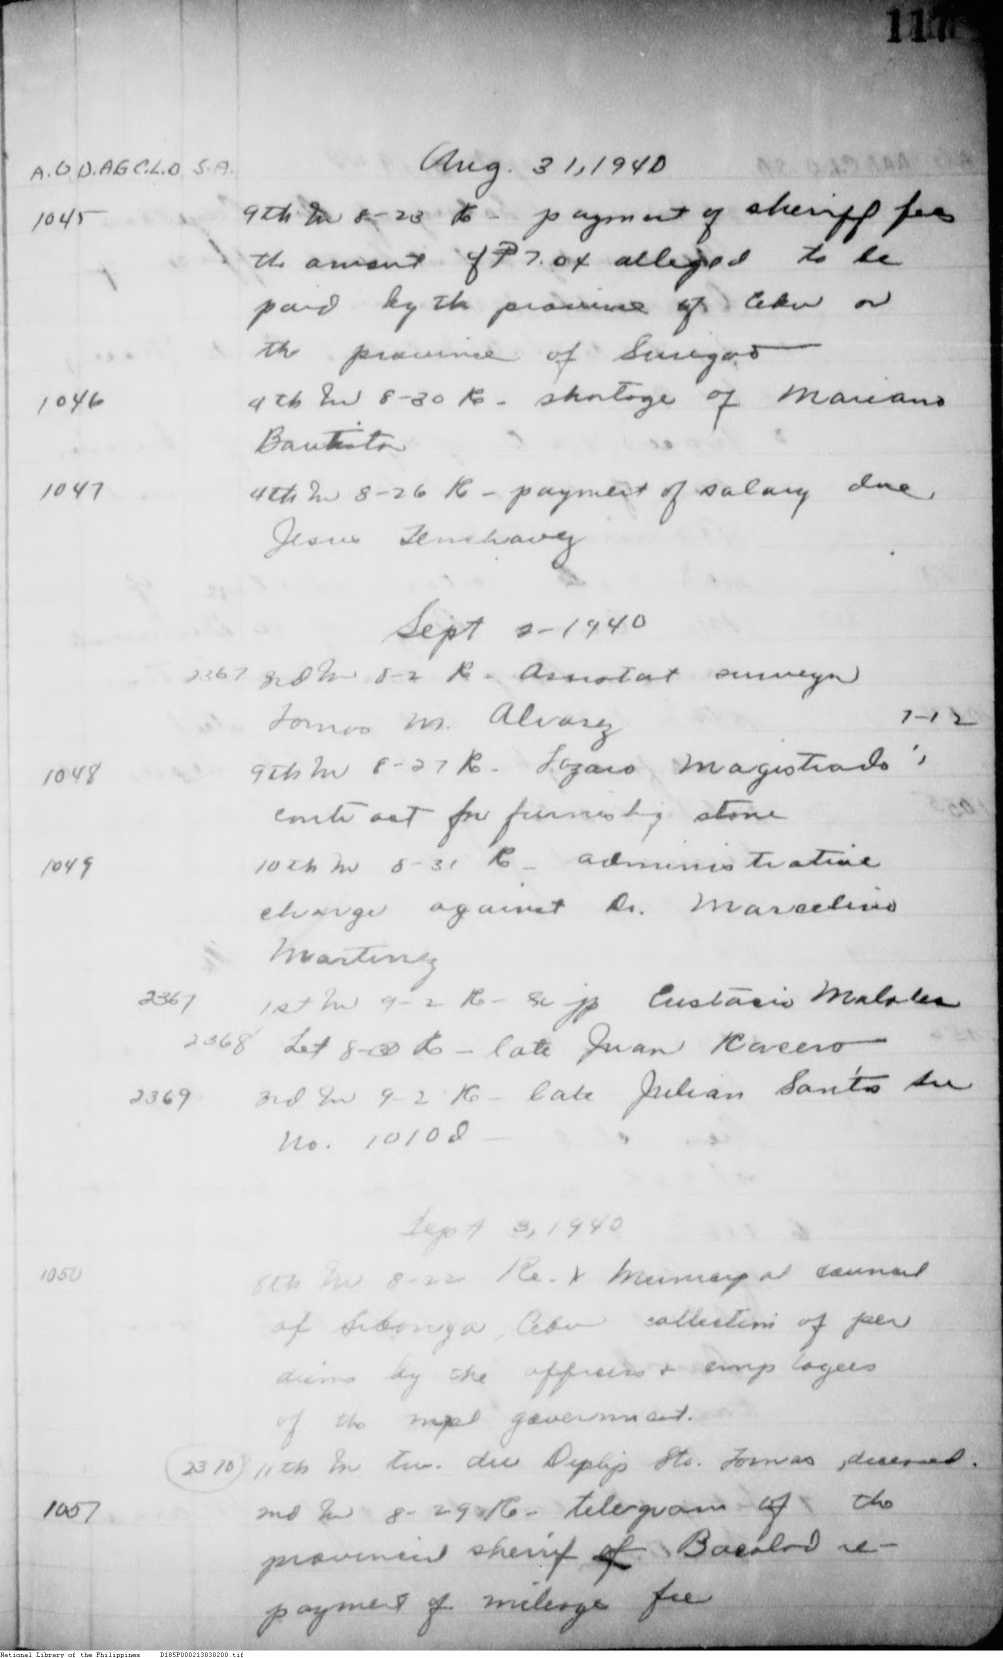 117
A.O D.AG C.L.O S.A.
Aug. 31, 1940
1045 9th In 8-23 Re - payment of sheriff fees
the amount of ₱7.04 alleged to be
paid by the province of Cebu or
the province of Surigao
1046 4th In 8-30 Re - shortage of Mariano
Bautista
1047 4th In 8-26 Re - payment of salary due
Jesus Tenchavez
Sept 2-1940
2367 3rd In 8-2 Re - Assistant surveyor
Tomas M. Alvarez 7-12
1048 9th In 8-27 Re - Lazaro Magistrado's
contract for furnishing stone
1049 10th In 8-31 Re - administrative
charge against Dr. Marcelino
Martinez
2367 1st In 9-2 Re - jp Eustacio
2368 Let 8-30 Re - late Juan
2369 3rd In 9-2 Re - late Julian Santos
No. 1010
Sept 3, 1940
1050 8th In 8-22 Re - Municipal council
of Sibonga, Cebu collection of per
diems by the officers & employees
of the mpl government.
2370 11th In due Sto. Tomas, deceased.
1051 2nd In 8-29 Re - telegram of the
provincial sheriff of Bacolod re-
payment of mileage fee
National Library of the Philippines D185P000213838200.tif